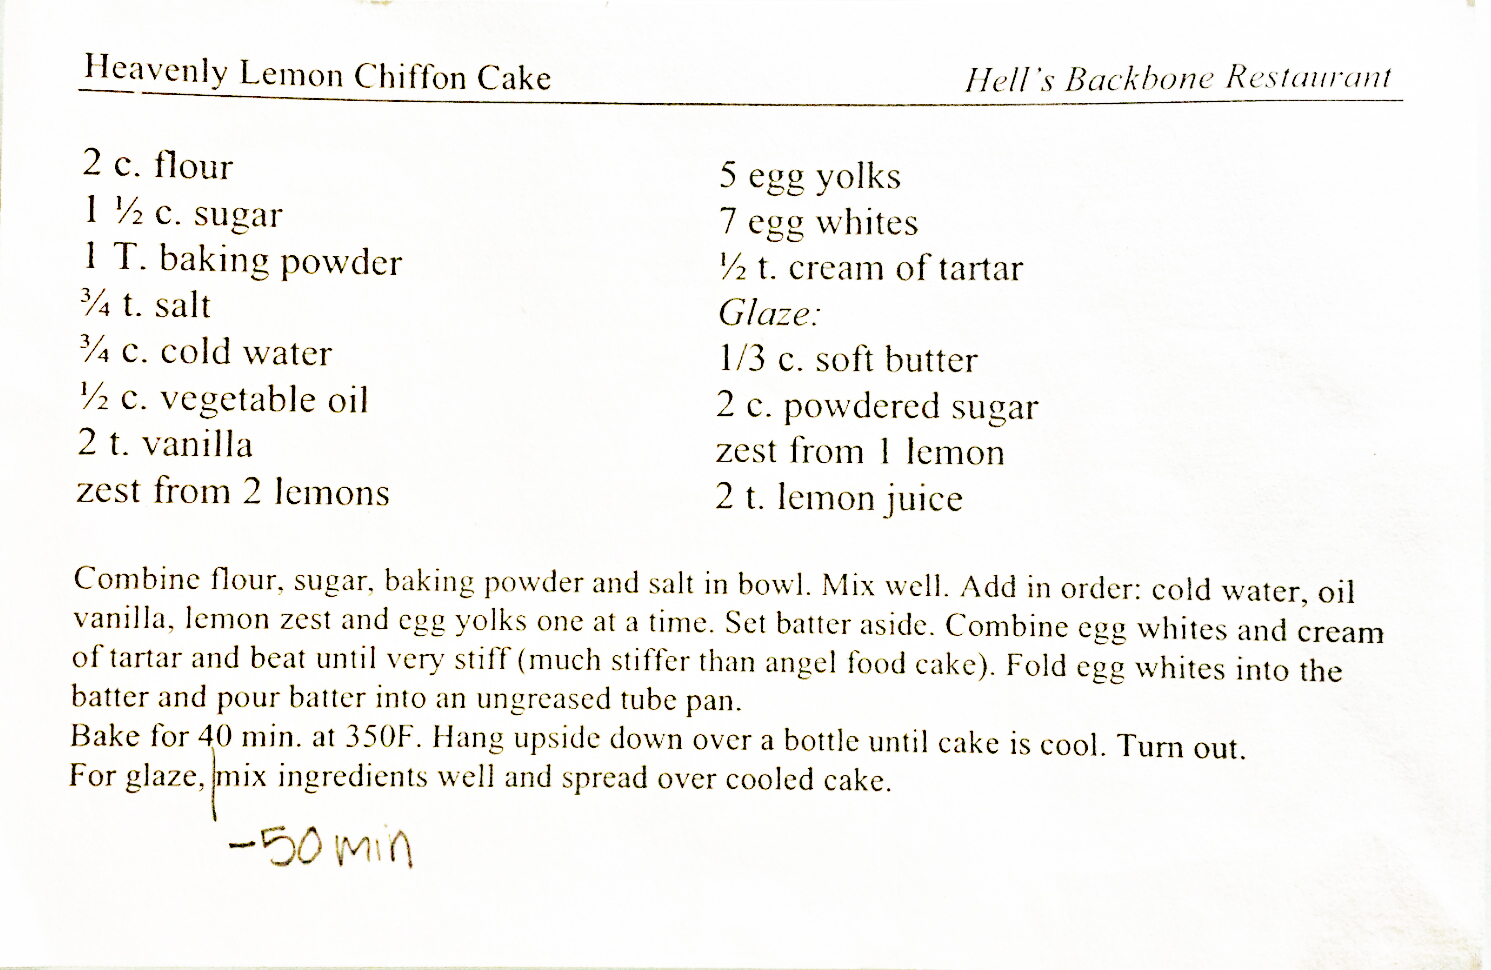 Heavenly Lemon Chiffon Cake Hell's Backbone Restaurant
2 c. flour
1 ½ c. sugar
1 T. baking powder
¾ t. salt
¾ c. cold water
½ c. vegetable oil
2 t. vanilla
zest from 2 lemons
5 egg yolks
7 egg whites
½ t. cream of tartar
Glaze:
1/3 c. soft butter
2 c. powdered sugar
zest from 1 lemon
2 t. lemon juice
Combine flour, sugar, baking powder and salt in bowl. Mix well. Add in order: cold water, oil
vanilla, lemon zest and egg yolks one at a time. Set batter aside. Combine egg whites and cream
of tartar and beat until very stiff (much stiffer than angel food cake). Fold egg whites into the
batter and pour batter into an ungreased tube pan.
Bake for 40 min. at 350F. Hang upside down over a bottle until cake is cool. Turn out.
For glaze, mix ingredients well and spread over cooled cake.
-50 min